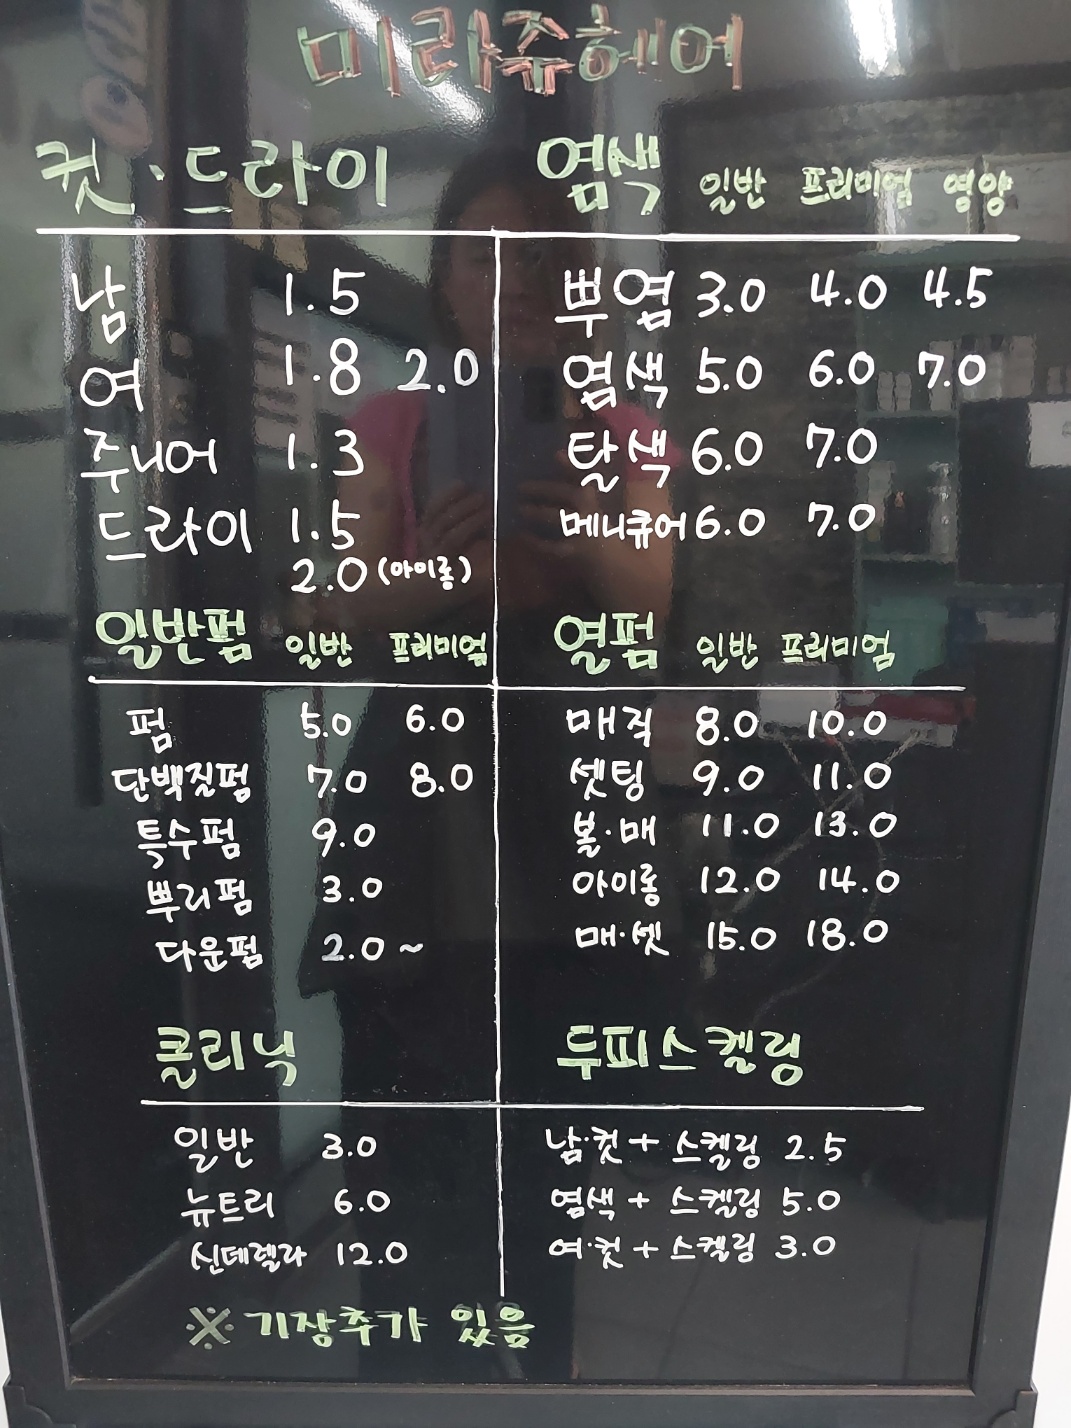 미라주헤어
컷·드라이
남 1.5
여 1.8 2.0
주니어 1.3
드라이 1.5
2.0 (아이롱)
염색 일반 프리미엄 영양
뿌염 3.0 4.0 4.5
염색 5.0 6.0 7.0
탈색 6.0 7.0
메니큐어 6.0 7.0
일반펌 일반 프리미엄
펌 5.0 6.0
단백질펌 7.0 8.0
특수펌 9.0
뿌리펌 3.0
다운펌 2.0~
열펌 일반 프리미엄
매직 8.0 10.0
셋팅 9.0 11.0
볼·매 11.0 13.0
아이롱 12.0 14.0
매·셋 15.0 18.0
클리닉
일반 3.0
뉴트리 6.0
신데렐라 12.0
두피스켈링
남·컷 + 스켈링 2.5
염색 + 스켈링 5.0
여·컷 + 스켈링 3.0
※ 기장추가 있음